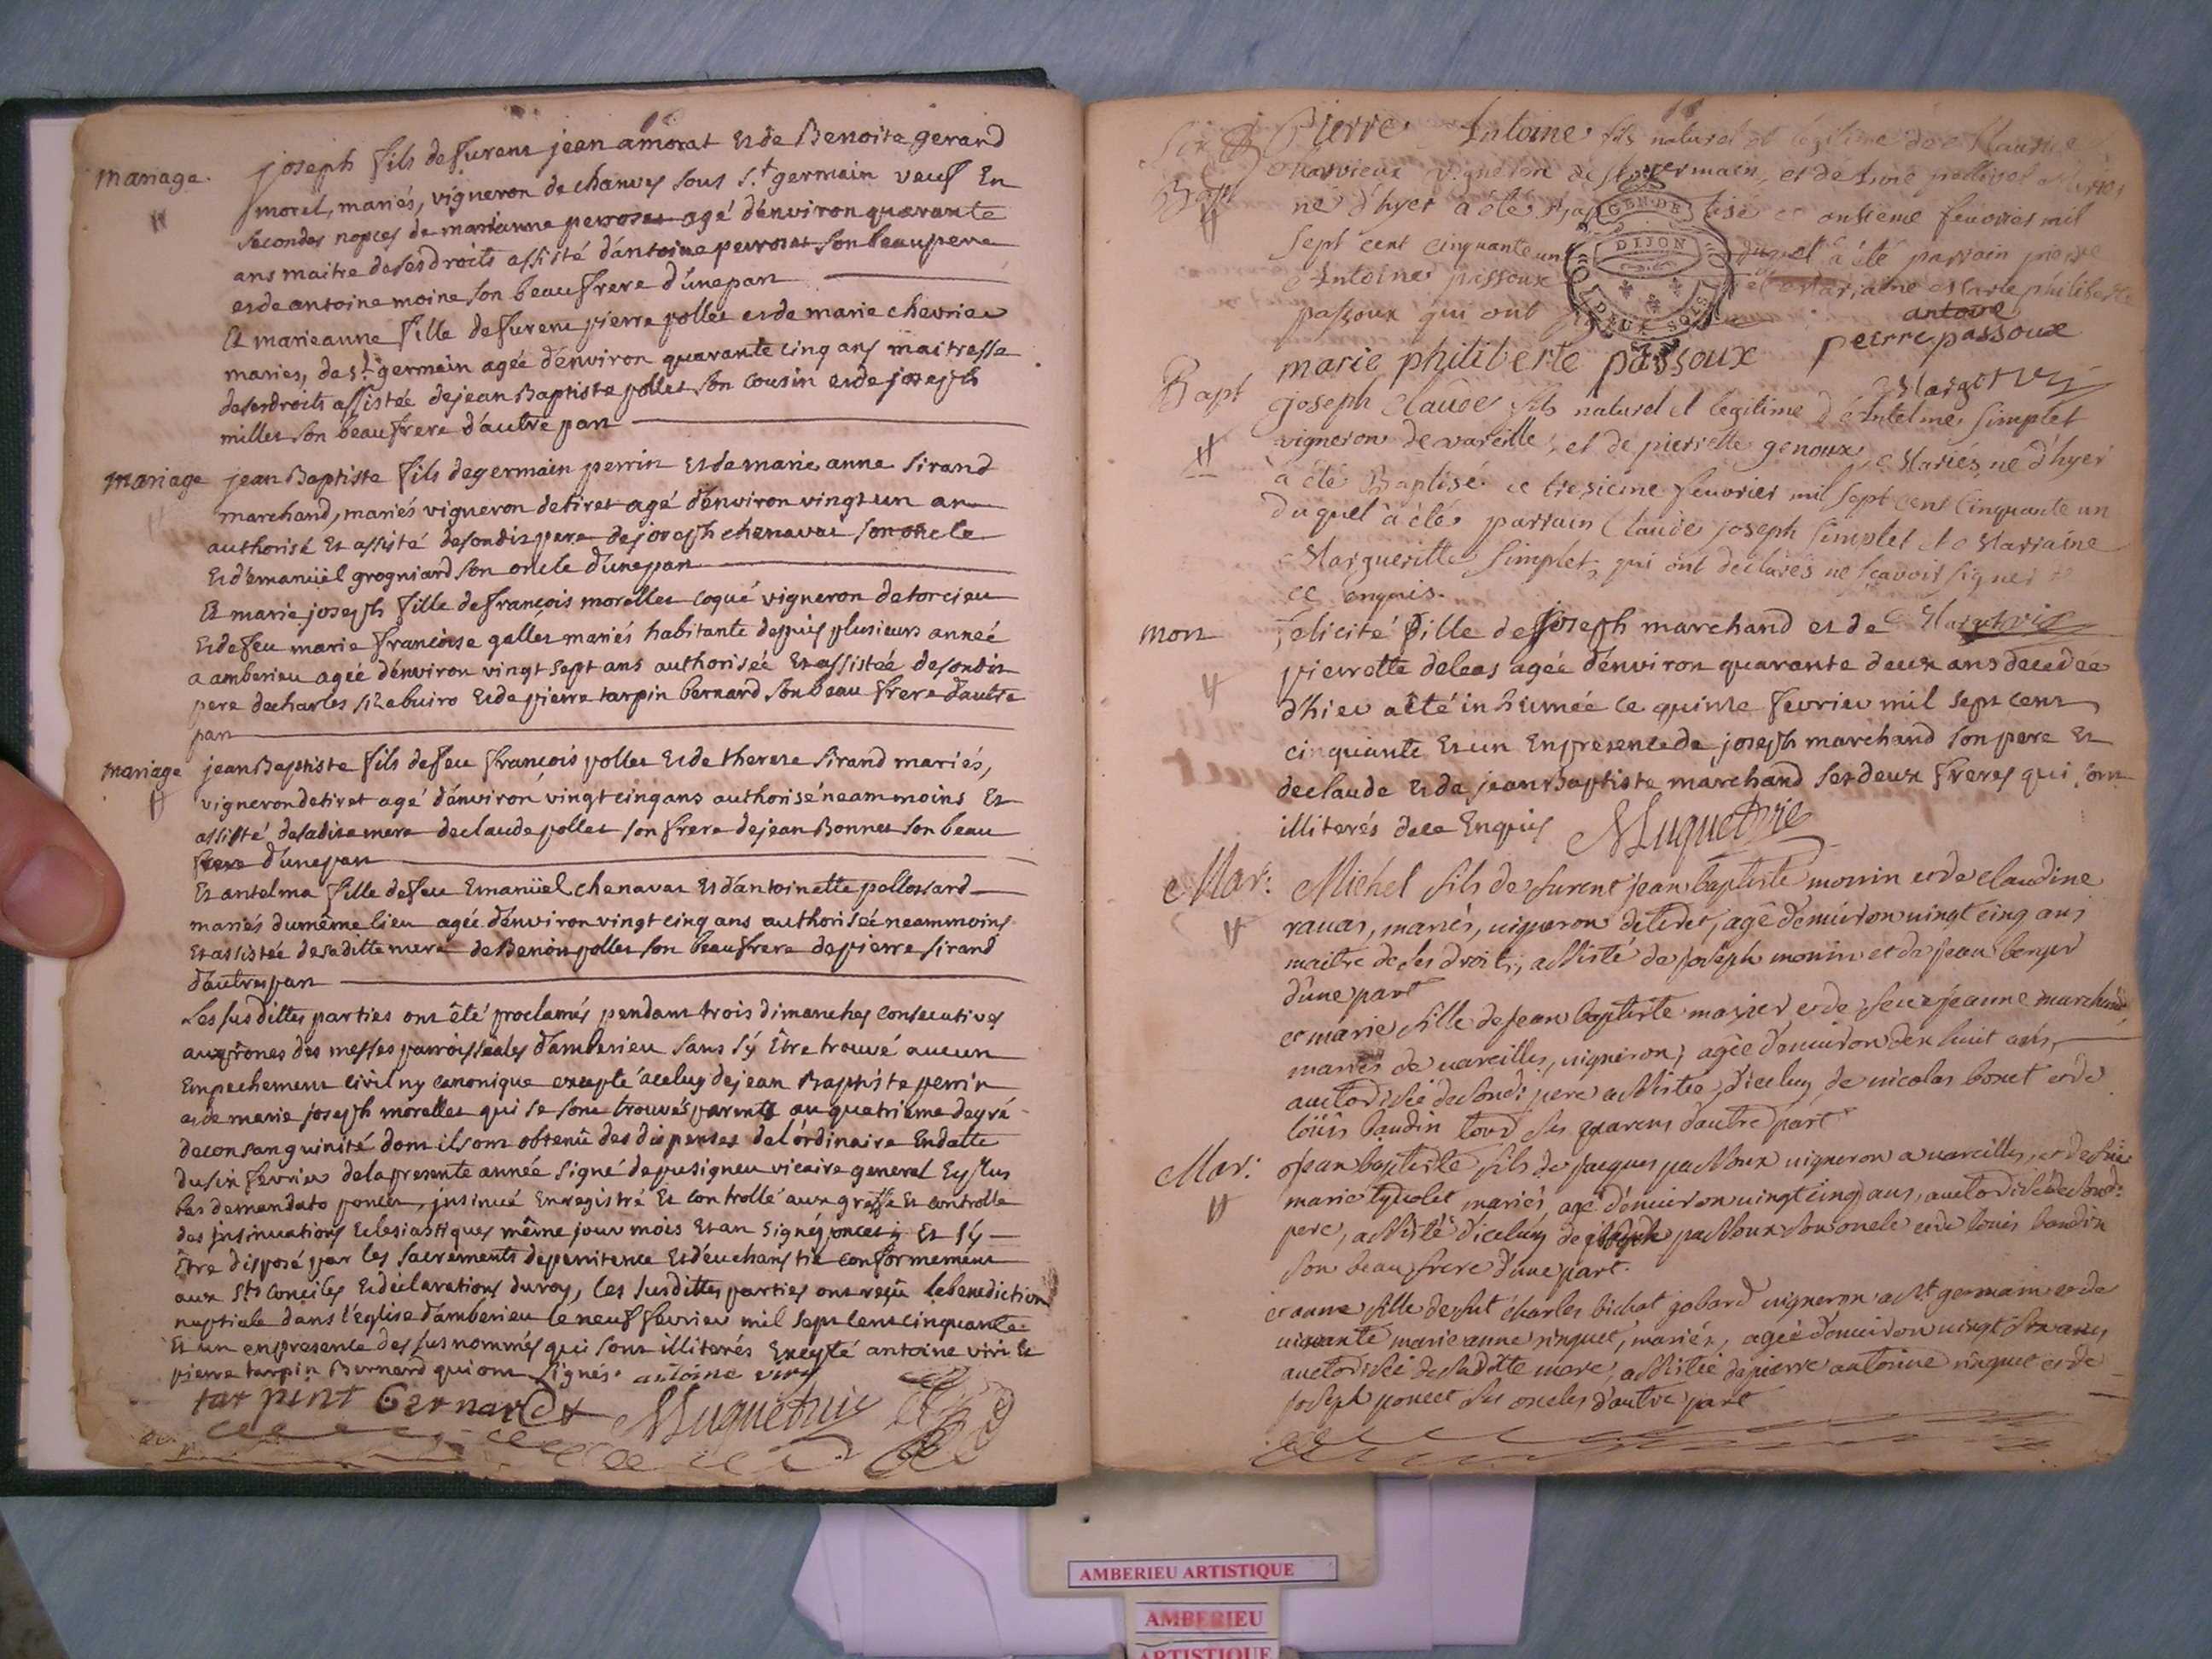 mariage.
joseph fils de furent jean amorat et de Benoite gerand
morel, mariés, vigneron de chanves sous s.t germain veuf En
secondes nopces de marianne perroset agé d'environ quarante
ans maitre de ses droits assisté d'antoine perroset son beau pere
et de antoine moine son beau frere d'une part
Et marieanne fille de furent pierre pollet et de marie chevrier
maries, de s.t germain agée d'environ quarante cinq ans maitresse
de ses droits assistée de jean Baptiste pollet son cousin et de joseph
millet son beau frere d'autre part
mariage
jean Baptiste fils de germain perrin et de marie anne sirand
marchand, mariés vigneron de tiret agé d'environ vingt un an
authorisé Et assisté de son dit pere de joseph chenavat son oncle
Et d'emanüel grogniard son oncle d'une part
Et marie joseph fille de françois morellet coqué vigneron de torcieu
Et de feu marie francoise gallet mariés habitante depuis plusieurs anneé
a amberieu agée d'environ vingt sept ans authorisée et assistée de son dit
pere de charles et de pierre tarpin bernard son beau frere d'autre
part
mariage
jean Baptiste fils de feu françois pollet Et de therese sirand mariés,
vigneron de tiret agé d'environ vingt cinq ans authorisé neammoins Et
assisté de sa dite mere de claude pollet son frere de jean Bonnet son beau
frere d'une part
Et antelma fille de feu Emanüel chenavat Et d'antoinette pollossard
mariés du même lieu agée d'environ vingt cinq ans authorisée neammoins
et assistée de sa ditte mere de Benoit pollet son beau frere de pierre sirand
d'autre part
Les sus dittes parties ont été proclamés pendant trois dimanches consecutives
aux prônes des messes parroissiales d'amberieu sans s'y Être trouvé aucun
Empechement civil ny canonique excepté a celuy de jean Baptiste perrin
et de marie joseph morellet qui se sont trouvés parents au quatrieme degré
de consanguinité dont ils ont obtenû des dispenses de l'ordinaire En datte
du six fevrier de la presente année signé de pusigneu vicaire general Et plus
bas de mandato poncet, jnsinué Enregistré Et controllé aux greffe Et controlle
des jnsinuations Eclesiastiques même jour mois Et an signé poncet Et s'y
Être disposé par les sacrements de penitence Et d'eucharistie conformement
aux sts conciles Et déclarations du roy, les susdittes parties ont reçû la benediction
nuptiale dans l'église d'amberieu le neuf fevrier mil sept cent cinquante
Et un en presence des sus nommés qui sont illiterés Excepté antoine viri Et
pierre tarpin Bernard qui ont signés. antoine viry
tarpint bernard MuguetVic
Bapt
Pierre Antoine fils naturel et légitime de Claude
vigneron de st germain, et de
né d'hyer a été baptisé ce onsieme feuvrier mil
sept cent cinquante un duquel a été parrain pierre
Antoine passoux et marraine Marie philiberte
passoux qui ont
GEN DE DIJON DEUX SOLS
antoine
marie philiberte passoux pierre passoux
Bapt
joseph Claude fils naturel et legitime d'Antelme simplet
vigneron de vareille, et de pierrette genoux, Mariés, né d'hyer
à été Baptisé ce tresieme feuvrier mil sept cent cinquante un
duquel à été parrain Claude joseph simplet et Marraine
Marguerite simplet, qui ont déclarés ne sçavoir signer de
ce enquis.
mort
felicité fille de joseph marchand et de
pierrette deleas agée d'environ quarante deux ans decedée
d'hier a été inhumée ce quinze fevrier mil sept cent
cinquante Et un En presence de joseph marchand son pere Et
de claude Et de jean Baptiste marchand ses deux freres qui sont
illiterés de ce Enquis MuguetVic
Mar:
Michel fils de furent jean baptiste monin et de claudine
ravat, mariés, vigneron de tiret, agé d'environ vingt cinq ans
maitre de ses droits, assisté de joseph monin et de jean berger
d'une part
et marie fille de jean baptiste marier et de feüe jeanne marchand
mariés de vareilles, vigneron, agée d'environ dex huit ans,
auctorisée de sondi pere assistée d'iceluy, de nicolas bonet et de
loüis baudin tous ses parens d'autre part
Mar:
jean baptiste fils de jacques passoux vigneron a vareilles, et de feüe
marie mariés, agé d'environ vingt cinq ans, auctorisé de sond:
pere, assisté d'iceluy de joseph passoux son oncle et de louis baudin
son beau frere d'une part.
et anne fille de fut charles bichat gobard vigneron a st germain et de
vivante marie anne ninguet, mariés, agée d'environ vingt six ans,
auctorisée de sa ditte mere, assistée de pierre antoine ninguet et de
joseph poncet ses oncles d'autre part
AMBERIEU ARTISTIQUE
AMBERIEU
ARTISTIQUE